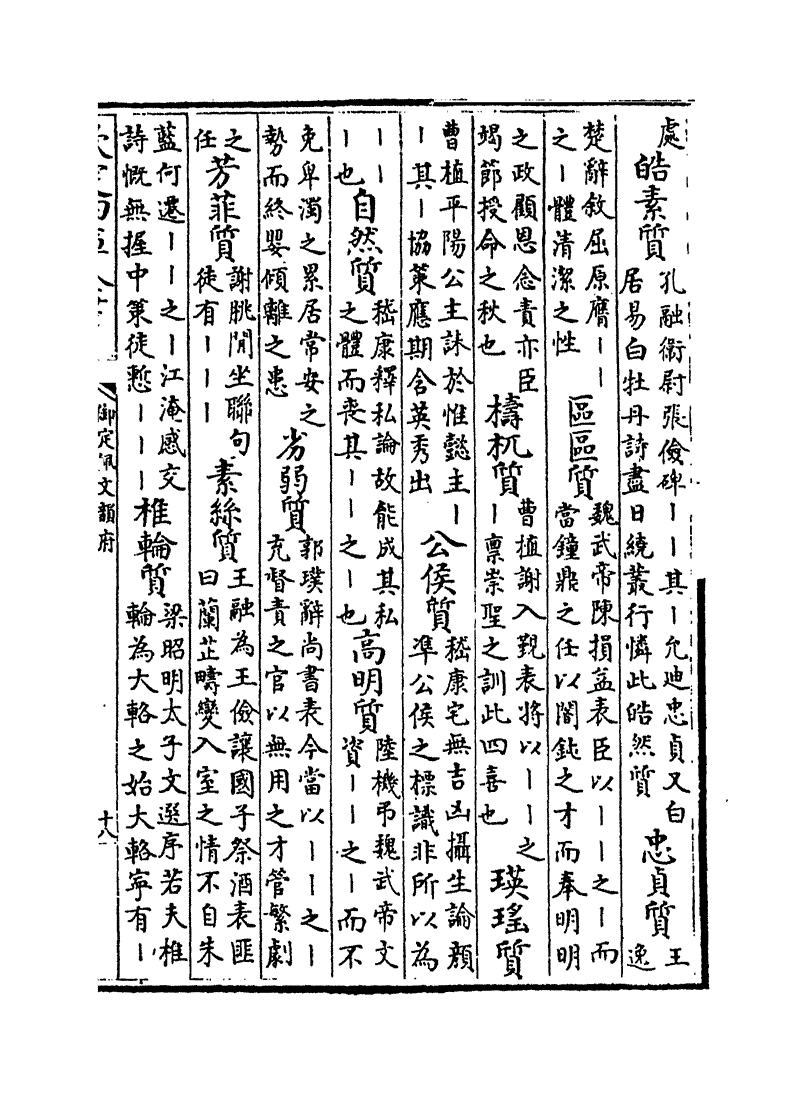 處皓素質孔融衛尉張儉碑丨丨其丨允迪忠貞又白居易白牡丹詩盡日繞叢行憐此皓然質忠貞質王逸
楚辭敘屈原膺丨丨之丨體清潔之性區區質魏武帝陳損益表臣以丨丨之丨而當鐘鼎之任以闇鈍之才而奉明明
之政顧恩念責亦臣竭節授命之秋也檮杌質曹植謝入覲表將以丨丨之丨稟崇聖之訓此四喜也瑛瑤質
曹植平陽公主誄於惟懿主丨丨其丨協策應期含英秀出公侯質嵇康宅無吉凶攝生論顏準公侯之標識非所以為
丨丨丨也自然質嵇康釋私論故能成其私之體而喪其丨丨之丨也高明質陸機弔魏武帝文資丨丨之丨而不
免卑濁之累居常安之勢而終嬰傾離之患劣弱質郭璞辭尚書表今當以丨丨之丨充督責之官以無用之才管繁劇
之任芳菲質謝朓閒坐聯句徒有丨丨丨素絲質王融為王儉讓國子祭酒表匪曰蘭芷疇變入室之情不自朱
藍何遷丨丨之丨江淹感交詩慨無握中策徒慙丨丨丨椎輪質梁昭明太子文選序若夫椎輪為大輅之始大輅寧有丨
御定佩文韻府
十八